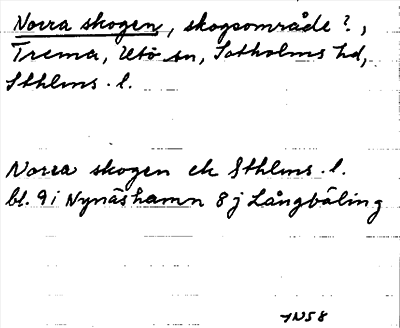 Norra skogen, skogsområde?,
Trema, Utö sn, Sotholms hd,
Sthlms. l.
Norra skogen ek Sthlms. l.
bl. 9 i Nynäshamn 8 j Långbäling
JNS8